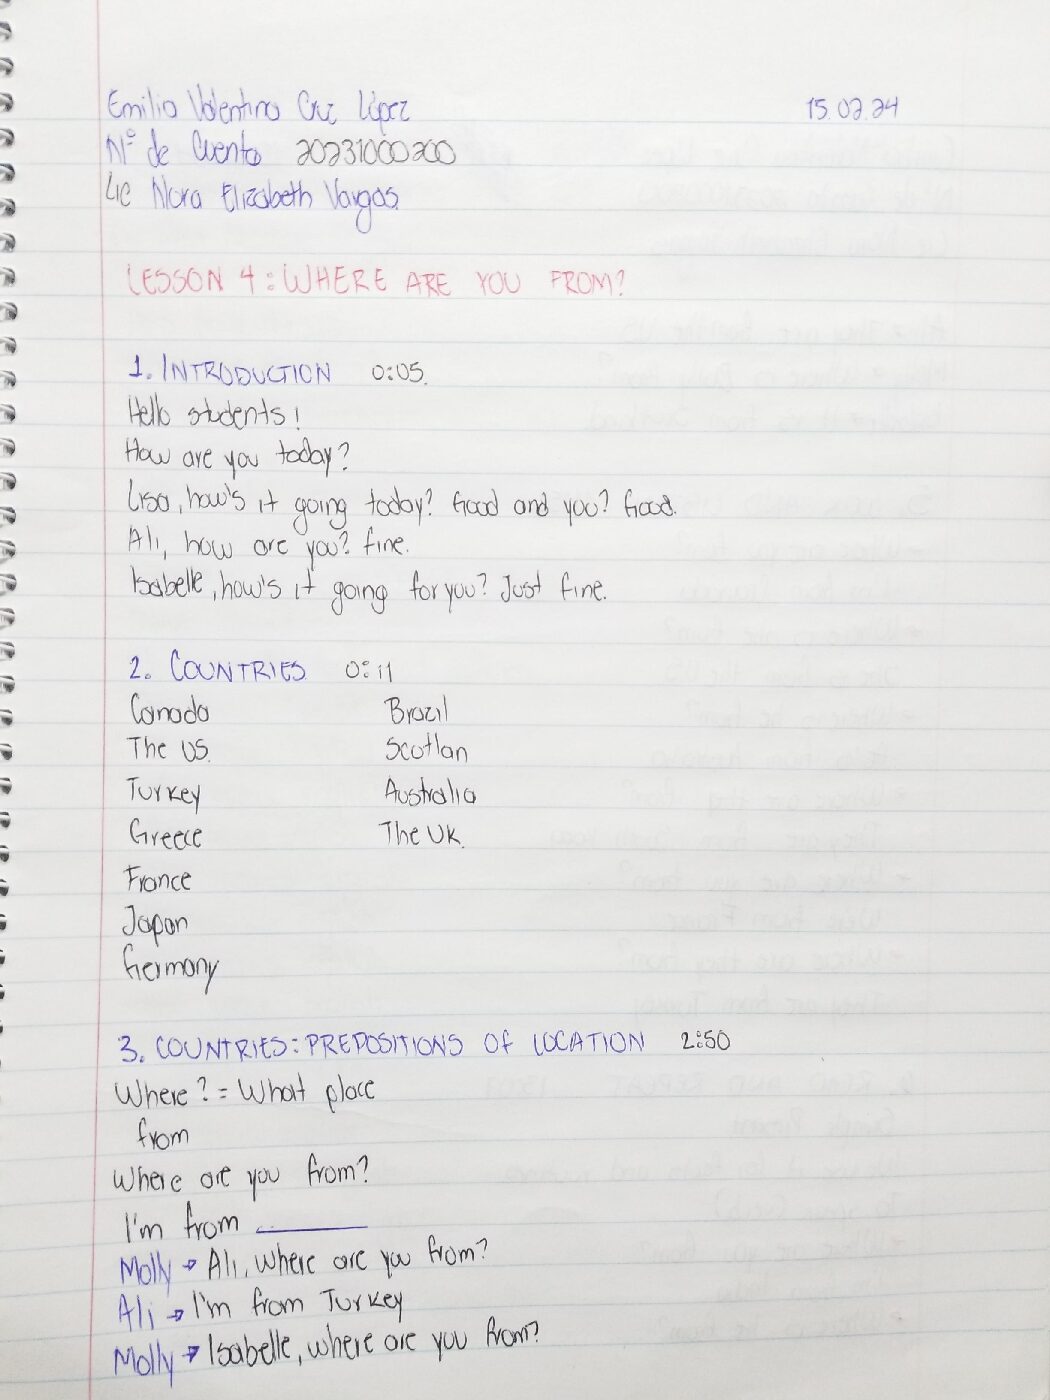 Emilio Valentino Cruz López 15.02.24
N° de Cuenta 20231000200
Lic Nora Elizabeth Vargas
LESSON 4: WHERE ARE YOU FROM?
1. INTRODUCTION 0:05
Hello students!
How are you today?
Lisa, how's it going today? Good and you? Good.
Ali, how are you? fine.
Isabelle, how's it going for you? Just fine.
2. COUNTRIES 0:11
Canada Brazil
The US. Scotlan
Turkey Australia
Greece The UK.
France
Japan
Germany
3. COUNTRIES: PREPOSITIONS OF LOCATION 2:50
Where? = What place
from
Where are you from?
I'm from ________
Molly → Ali, where are you from?
Ali → I'm from Turkey
Molly → Isabelle, where are you from?